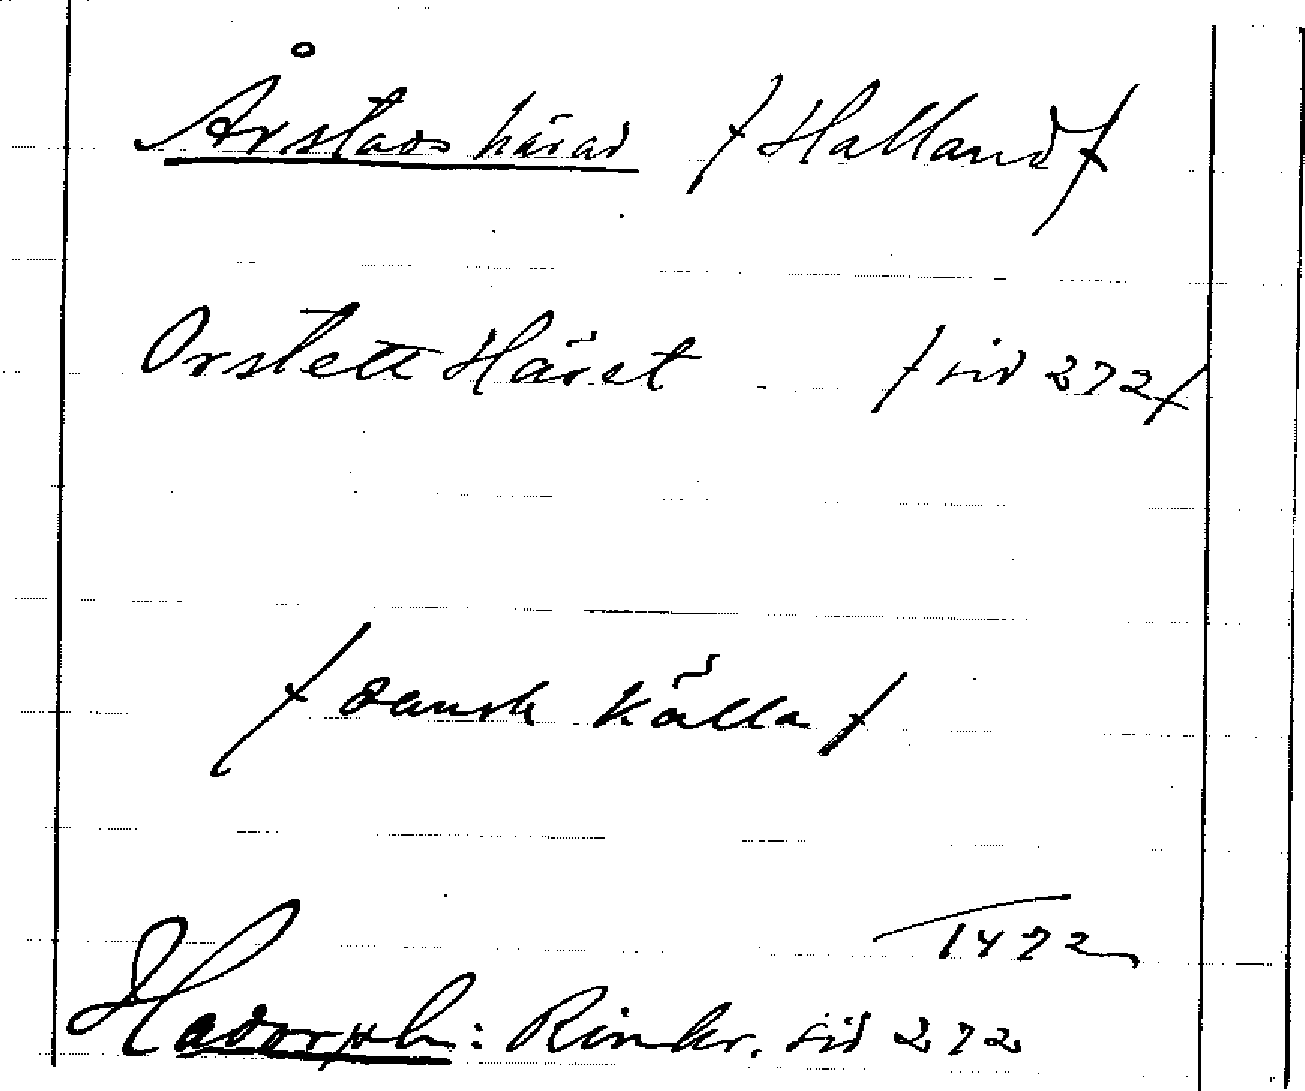 Årstads härad /Halland/
Orstett Häret /sid 272/
/dansk källa/
1472
Hadorph: Rimkr. sid 272